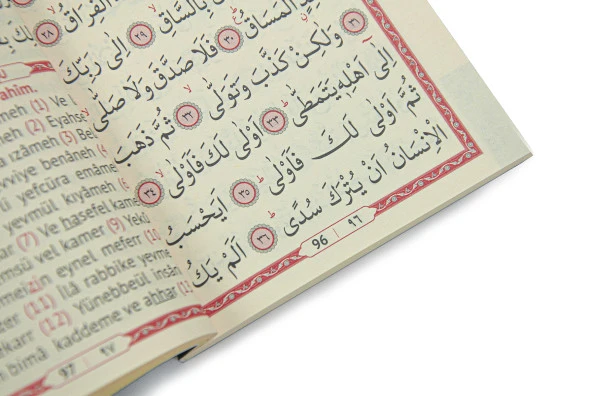 الْفِرَاقُ ﴿٢٨﴾
بِالسَّاقِ ﴿٢٩﴾ اِلٰى رَبِّكَ
الْمَسَاقُ ﴿٣٠﴾ فَلَا صَدَّقَ وَلَا صَلّٰى
﴿٣١﴾ وَلٰكِنْ كَذَّبَ وَتَوَلّٰى ﴿٣٢﴾ ثُمَّ ذَهَبَ
اِلٰٓى اَهْلِهٖ يَتَمَطّٰى ﴿٣٣﴾ اَوْلٰى لَكَ فَاَوْلٰى ﴿٣٤﴾
ثُمَّ اَوْلٰى لَكَ فَاَوْلٰى ﴿٣٥﴾ اَيَحْسَبُ
الْاِنْسَانُ اَنْ يُتْرَكَ سُدًى ﴿٣٦﴾ اَلَمْ يَكُ
96 | ٩٦
(1) Ve
(2) Eyahse
ızâmeh (3) Bel
benâneh (4)
yefcüra emâme
yevmül kıyâmeh (6)
(7) Ve hasefel kame
vel kamer (9) Yekû
eynel meferr (10)
(11) İlâ rabbike yevme
(12) Yünebbeül insân
bimâ kaddeme ve ahhar (13)
97 | ٩٧